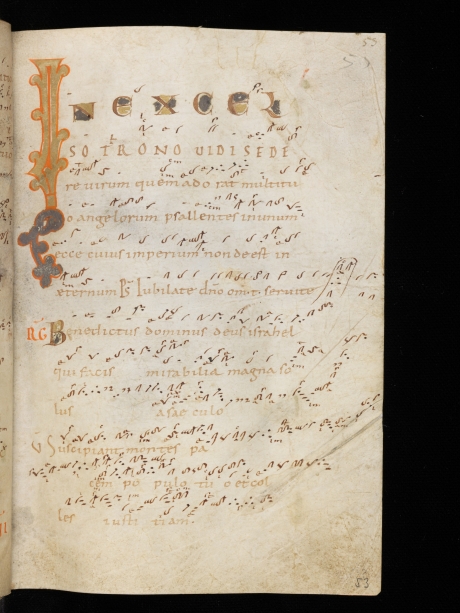 53
IN EXCEL
SO TRONO VIDI SEDE
re virum quem adorat multitu
o angelorum psallentes in unum
ecce cuius imperium non deest in
æternum Ps Iubilate dno om t servite
RG Benedictus dominus deus israhel
qui facis mirabilia magna so
lus a saeculo
Suscipiant montes pa
cem populo tuo et col
les iusti tiam.
53